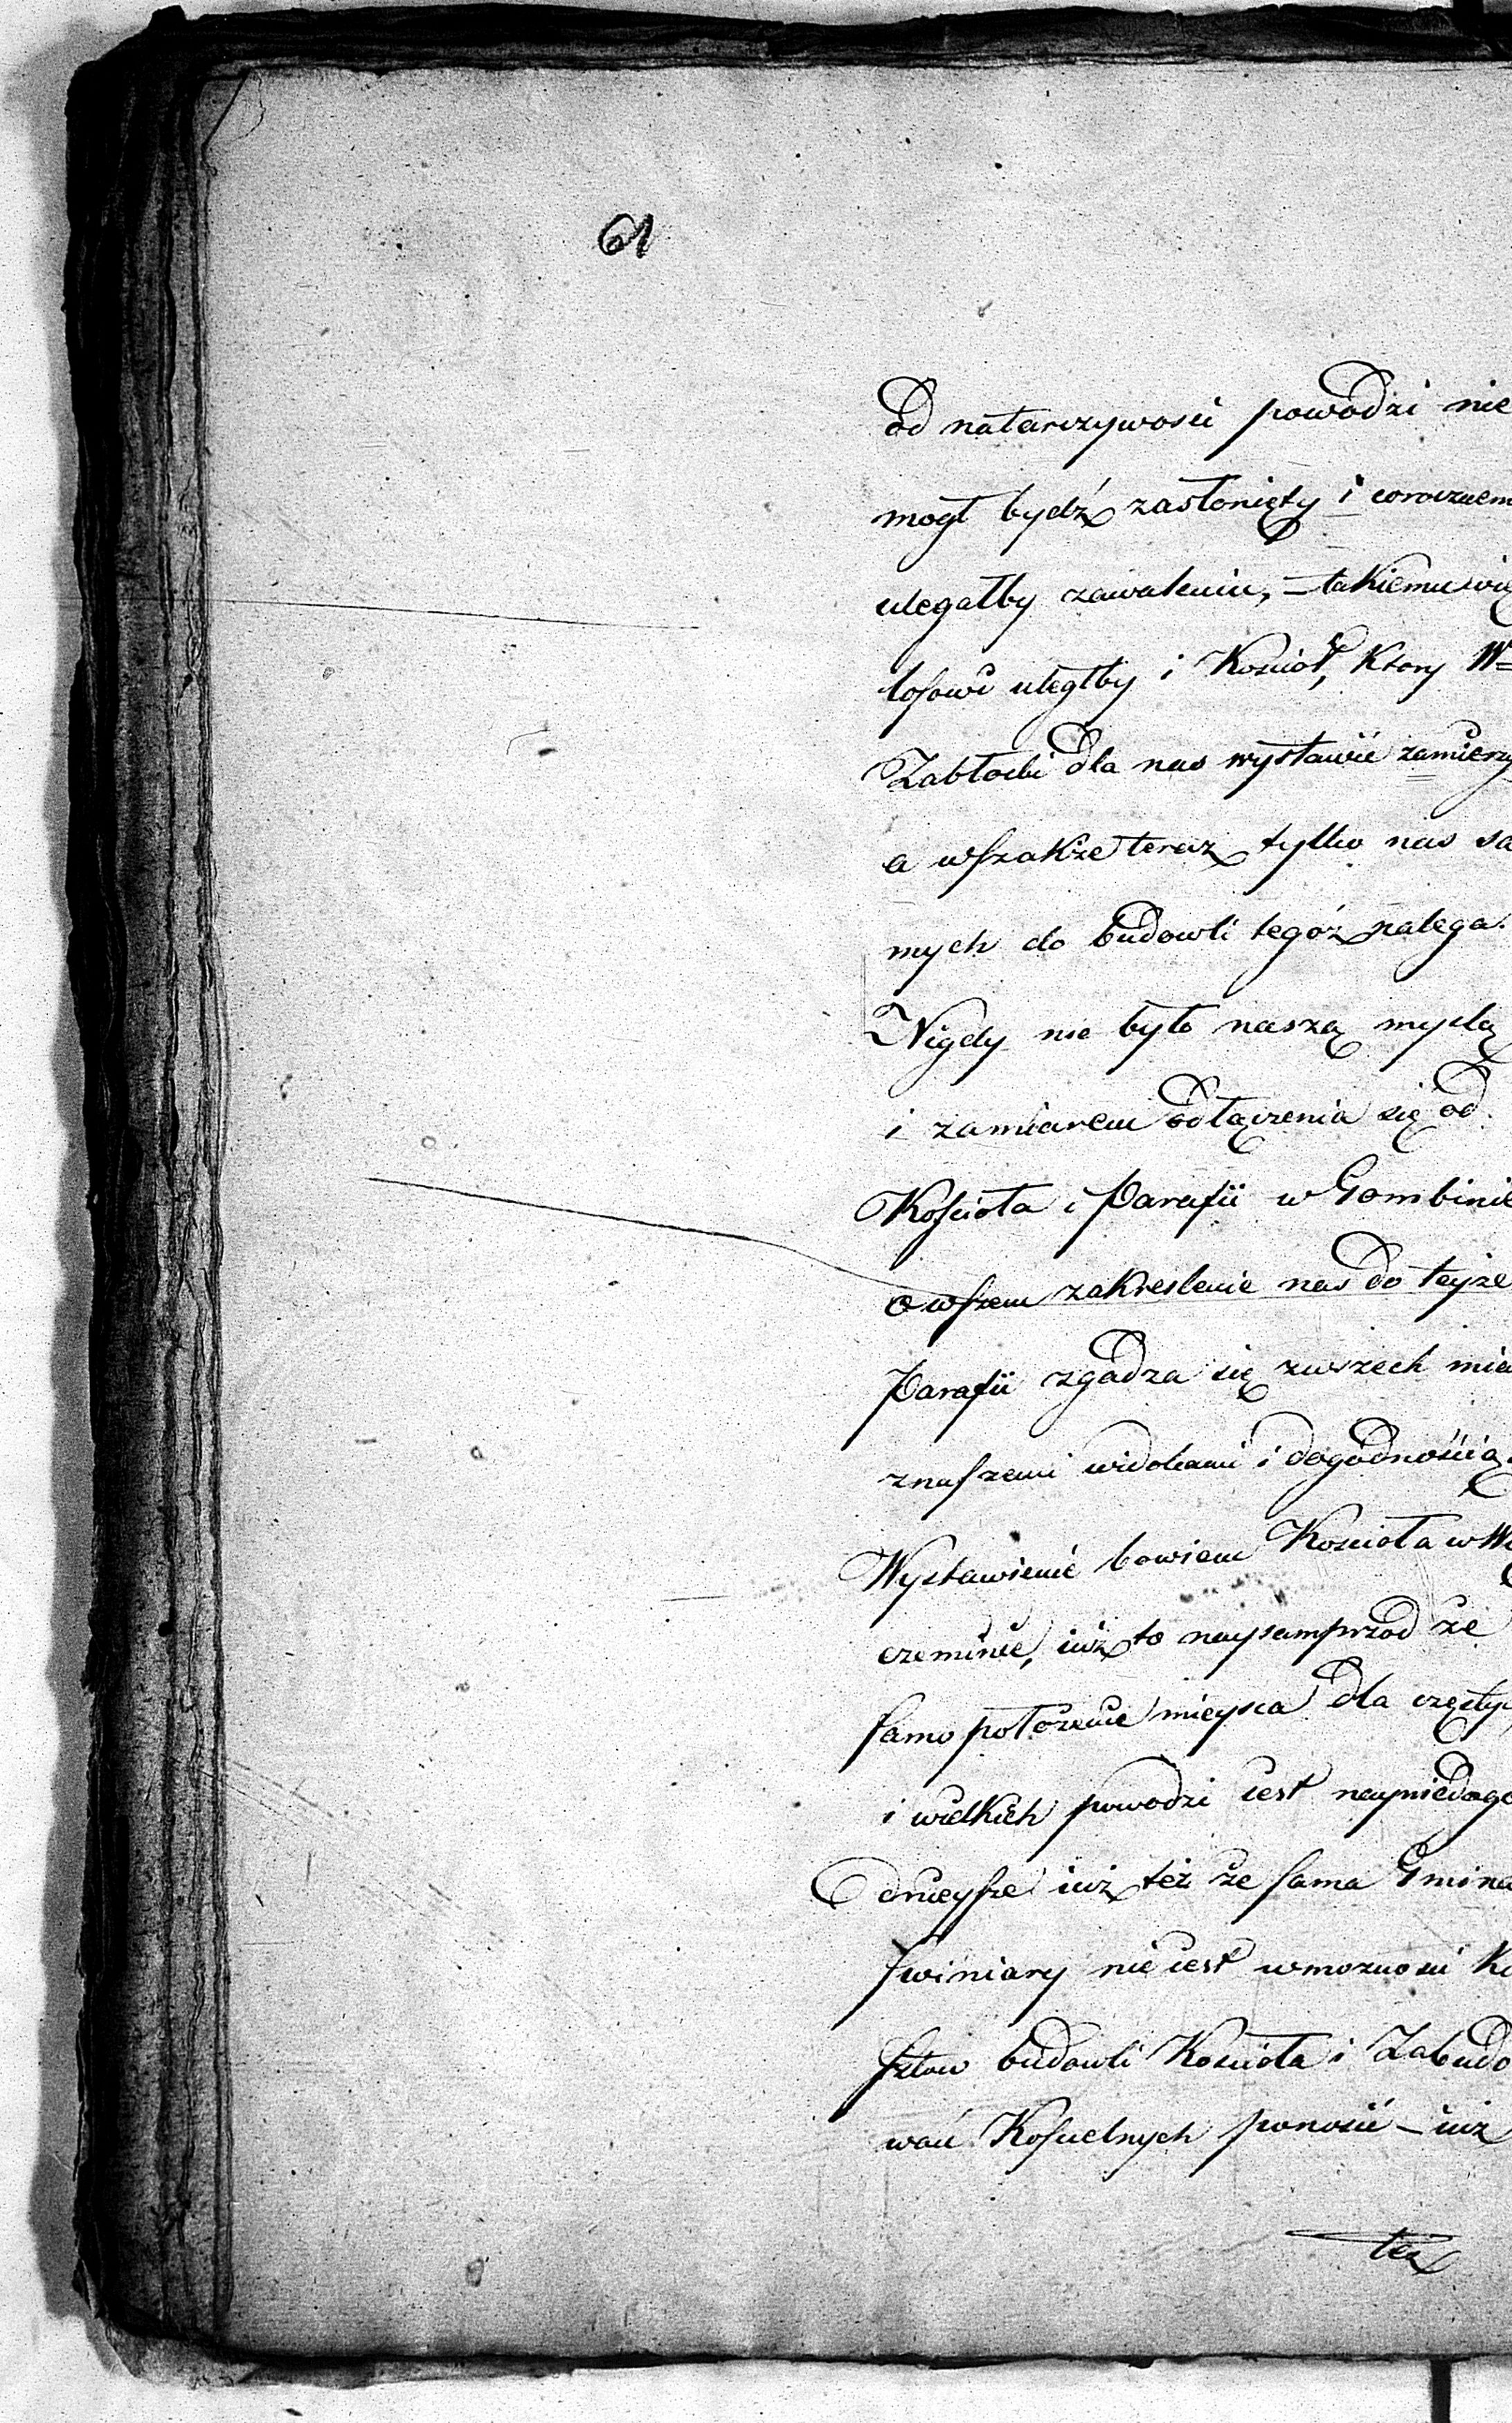 61
od natarczywosci powodzi nie
mogł bydź zasłonięty i corocznem
ulegałby zawaleniu, – takiemu wię
losowi uległby i Kościoł, Ktory W=
Zabłocki dla nas wystawić zamierzy
a wszakże teraz tylko nas sa
mych do budowli tegóz nalega.
Nigdy nie było naszą myslą
i zamiarem odłączenia się od
Kościoła i Parafii w Gombinie
owszem zakreslenie nas do teyże
Parafii zgadza się zwszech mia
znaszemi widokami i dogodnością
Wystawienie bowiem Kościoła w Wą
czeminie, iuż to naysamprzod że
samo położenie mieysca dla częstyc
i wielkich powodzi iest nayniedogo
dnieysze iuż też że sama Gmina
Swiniary nie iest wmoznosci Ko
sztow budowli Kościoła i Zabudo
wań Kościelnych ponosić – iuż
też